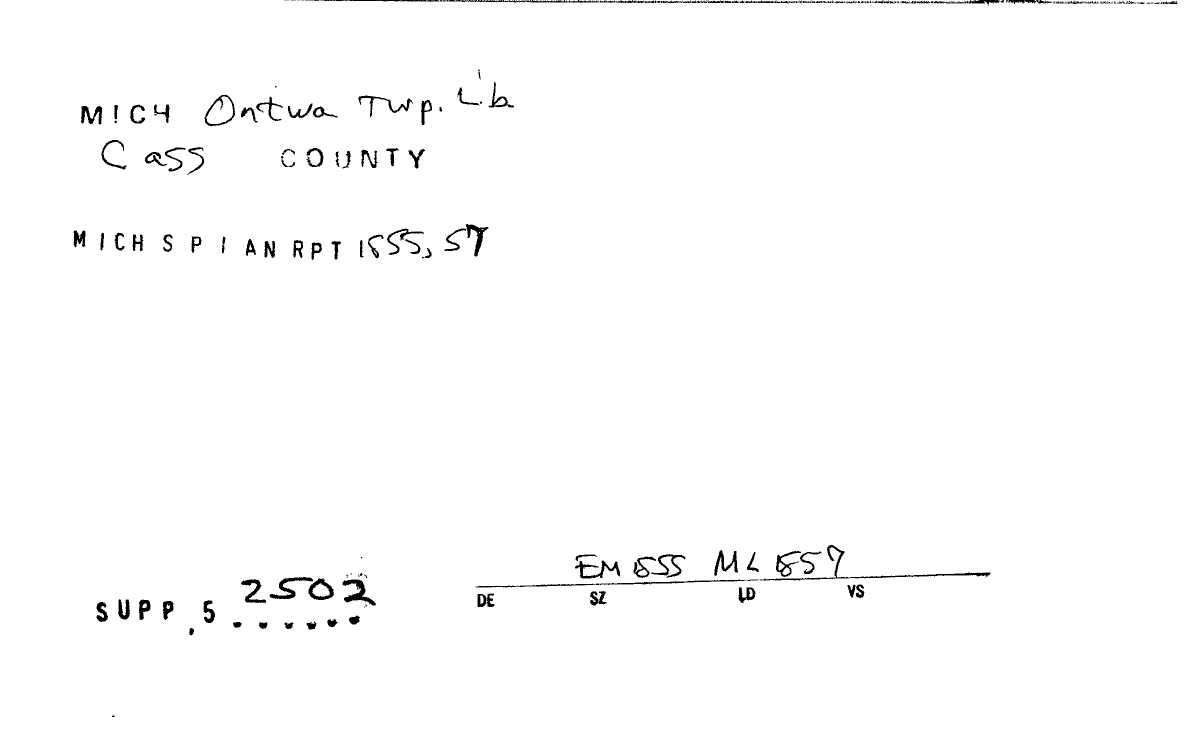 MICH Ontwa Twp. Lib
Cass COUNTY
MICH S P I AN RPT 1855, 57
SUPP,5 2502
EM 1855 ML 1857
DE SZ LD VS